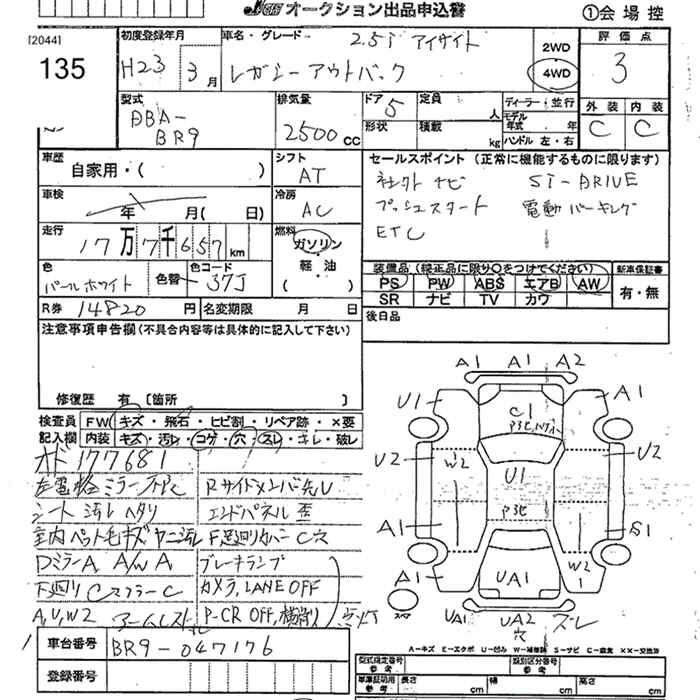 オークション出品申込書
①会場控
[2044]
135
初度登録年月
H23 3月
車名・グレード
2.5i アイサイト
レガシーアウトバック
2WD
4WD
評価点
3
外装 内装
C C
型式
DBA-
BR9
排気量
2500cc
ドア
5
定員
人
形状
積載
kg
ディーラー・並行
モデル年式 年
ハンドル 左・右
車歴
自家用・( )
シフト
AT
車検
年 月( 日)
冷房
AC
走行
17万7千657km
燃料
ガソリン
軽・油
( )
色
パールホワイト
色替
色コード
37J
R券 14820円
名変期限 月 日
セールスポイント(正常に機能するものに限ります)
ナビ SI-DRIVE
プッシュスタート 電動パーキング
ETC
装備品(純正品に限り○をつけてください)
新車保証書
PS PW ABS エアB AW
SR ナビ TV カワ
有・無
後日品
注意事項申告欄(不具合内容等は具体的に記入して下さい)
修復歴 有〔箇所 〕
検査員記入欄
FW キズ・飛石・ヒビ割・リペア跡・×要
内装 キズ・汚レ・コゲ・穴・スレ・キレ・破レ
177681
左電格ミラー Rサイドメンバ先U
シート汚レヘタリ エンドパネル歪
室内ペット毛キズヤニ汚レ F下廻りカバーC穴
DミラーA A/W A ブレーキランプ
下廻りCマフラーC カメラ,LANE OFF
A,U,W2 アームレスト P-CR OFF,横滑り 点灯
車台番号 BR9-047176
登録番号
A1 A1 A2
U1 A1
C1
U2 W2 U1 U2
A1 S1
A1 UA1 W2
1
UA1 UA2 ズレ
穴
A-キズ E-エクボ U-凹み W-補修跡 S-サビ C-腐食 ××-交換済
型式指定番号
参考
類別区分番号
参考
車庫証明用
参考
長さ cm
幅 cm
高さ cm